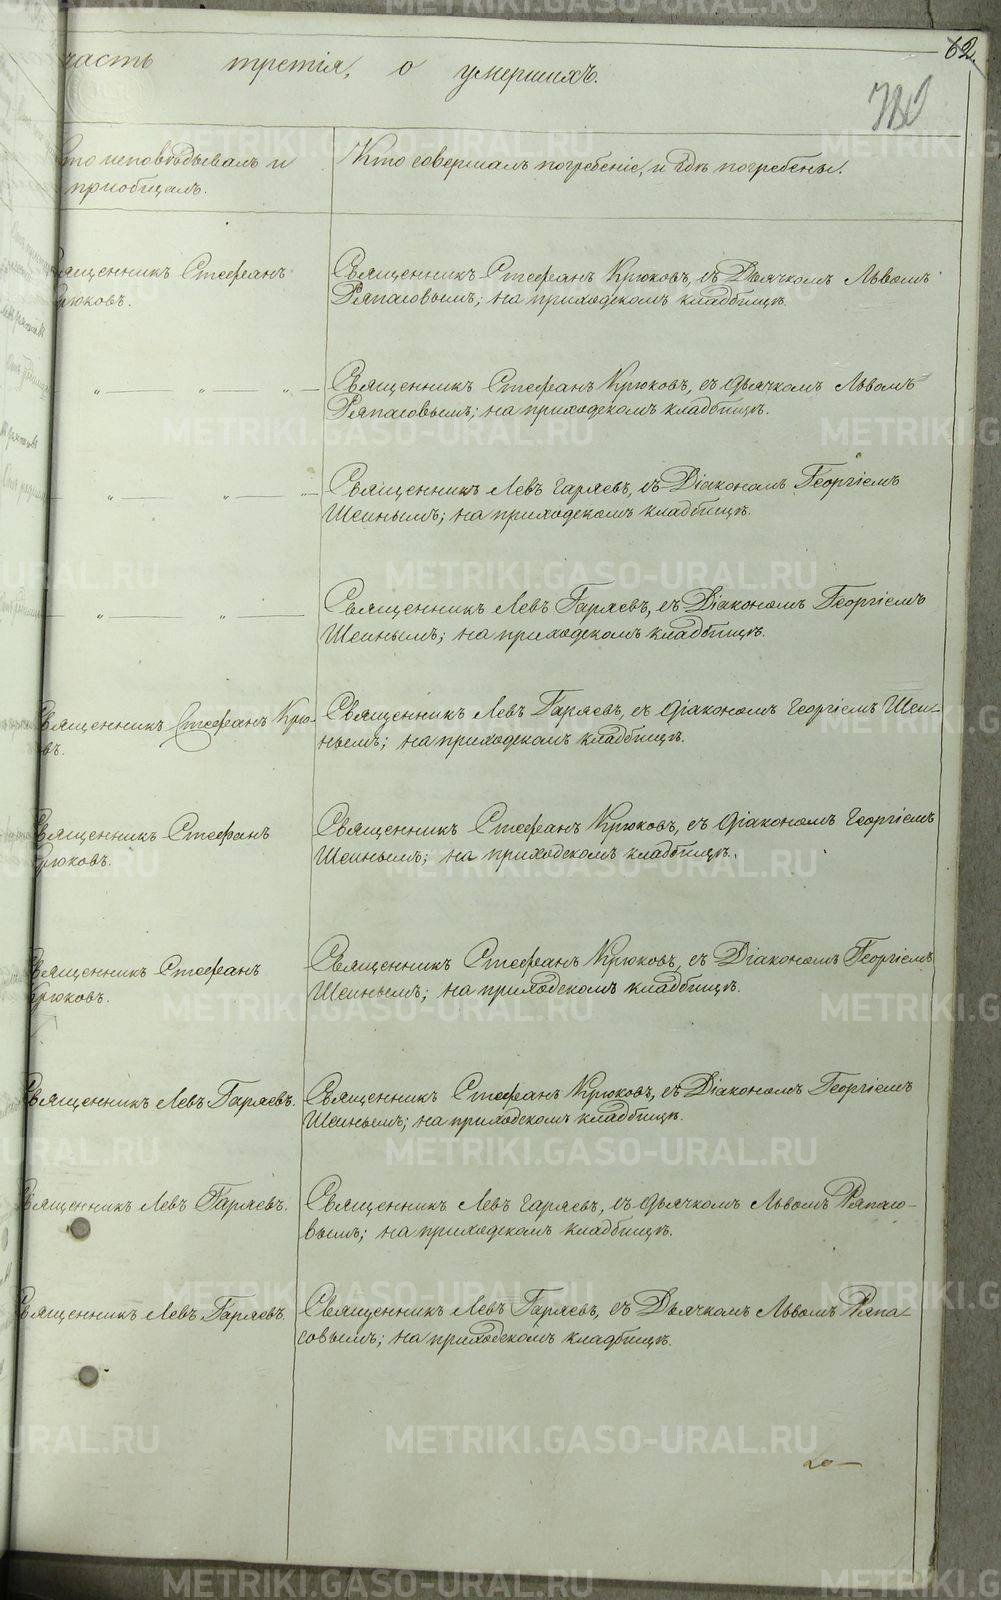 62.
часть третія, о умершихъ.
то исповѣдывалъ и
приобщалъ.
Кто совершалъ погребеніе, и гдѣ погребены.
вященникъ Стефанъ
рюковъ.
Священникъ Стефанъ Крюковъ, съ Дьячкомъ Львомъ
Ряпасовымъ; на приходскомъ кладбищѣ.
„ — „ — „ —
Священникъ Стефанъ Крюковъ, съ дьячкомъ Львомъ
Ряпасовымъ; на приходскомъ кладбищѣ.
„ — „ —
Священникъ Левъ Гаряевъ, съ Діакономъ Георгіемъ
Шеинымъ; на приходскомъ кладбищѣ.
„ — „ —
Священникъ Левъ Гаряевъ, съ Діакономъ Георгіемъ
Шеинымъ; на приходскомъ кладбищѣ.
вященникъ Стефанъ Крю-
въ.
Священникъ Левъ Гаряевъ, съ діакономъ Георгіемъ Шеи-
нымъ; на приходскомъ кладбищѣ.
вященникъ Стефан
рюковъ.
Священникъ Стефанъ Крюковъ, съ діакономъ Георгіемъ
Шеинымъ; на приходскомъ кладбищѣ.
вященникъ Стефан
рюковъ.
Священникъ Стефанъ Крюковъ, съ Діакономъ Георгіемъ
Шеинымъ; на приходскомъ кладбищѣ.
вященникъ Левъ Гаряевъ.
Священникъ Стефанъ Крюковъ, съ Діакономъ Георгіемъ
Шеинымъ; на приходскомъ кладбищѣ.
вященникъ Левъ Гаряевъ.
Священникъ Левъ Гаряевъ, съ дьячкомъ Львомъ Ряпасо-
вымъ; на приходскомъ кладбищѣ.
вященникъ Левъ Гаряевъ.
Священникъ Левъ Гаряевъ, съ Дьячкомъ Львомъ Ряпа-
совымъ; на приходскомъ кладбищѣ.
METRIKI.GASO-URAL.RU